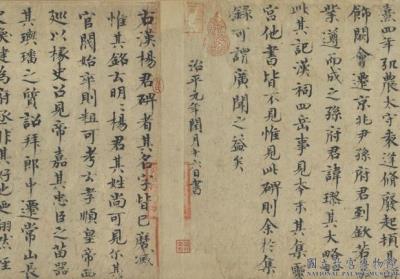 熹四年弘農太守袁逢修廢起頓
飾闕會遷京兆尹孫府君到欽若
業遵而成之孫府君諱璆其大略
此其記漢祠四岳事見本末其集靈
宮他書皆不見惟見此碑則余於集
錄可謂廣聞之益矣
治平元年閏月十六日書
右漢楊君碑者其名字皆已磨滅
惟其銘云明明楊君其姓尚可見尔其
官閥始卒則粗可考云孝順皇帝西
巡以掾史召見帝嘉其忠臣之苗器
其璵璠之質詔拜郎中遷常山長
史換犍為府丞非其好也
國立故宮博物院
NATIONAL PALACE MUSEUM